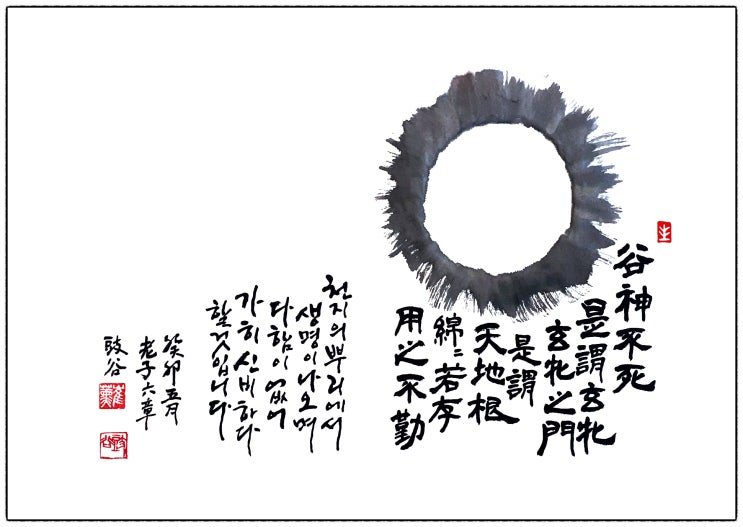 谷神不死
是謂玄牝
玄牝之門
是謂
天地根
綿〻若存
用之不勤
천지의 뿌리에서
생명이 나오며
다함이 없어
가히 신비하다
할것입니다
癸卯五月
老子六章
豉谷